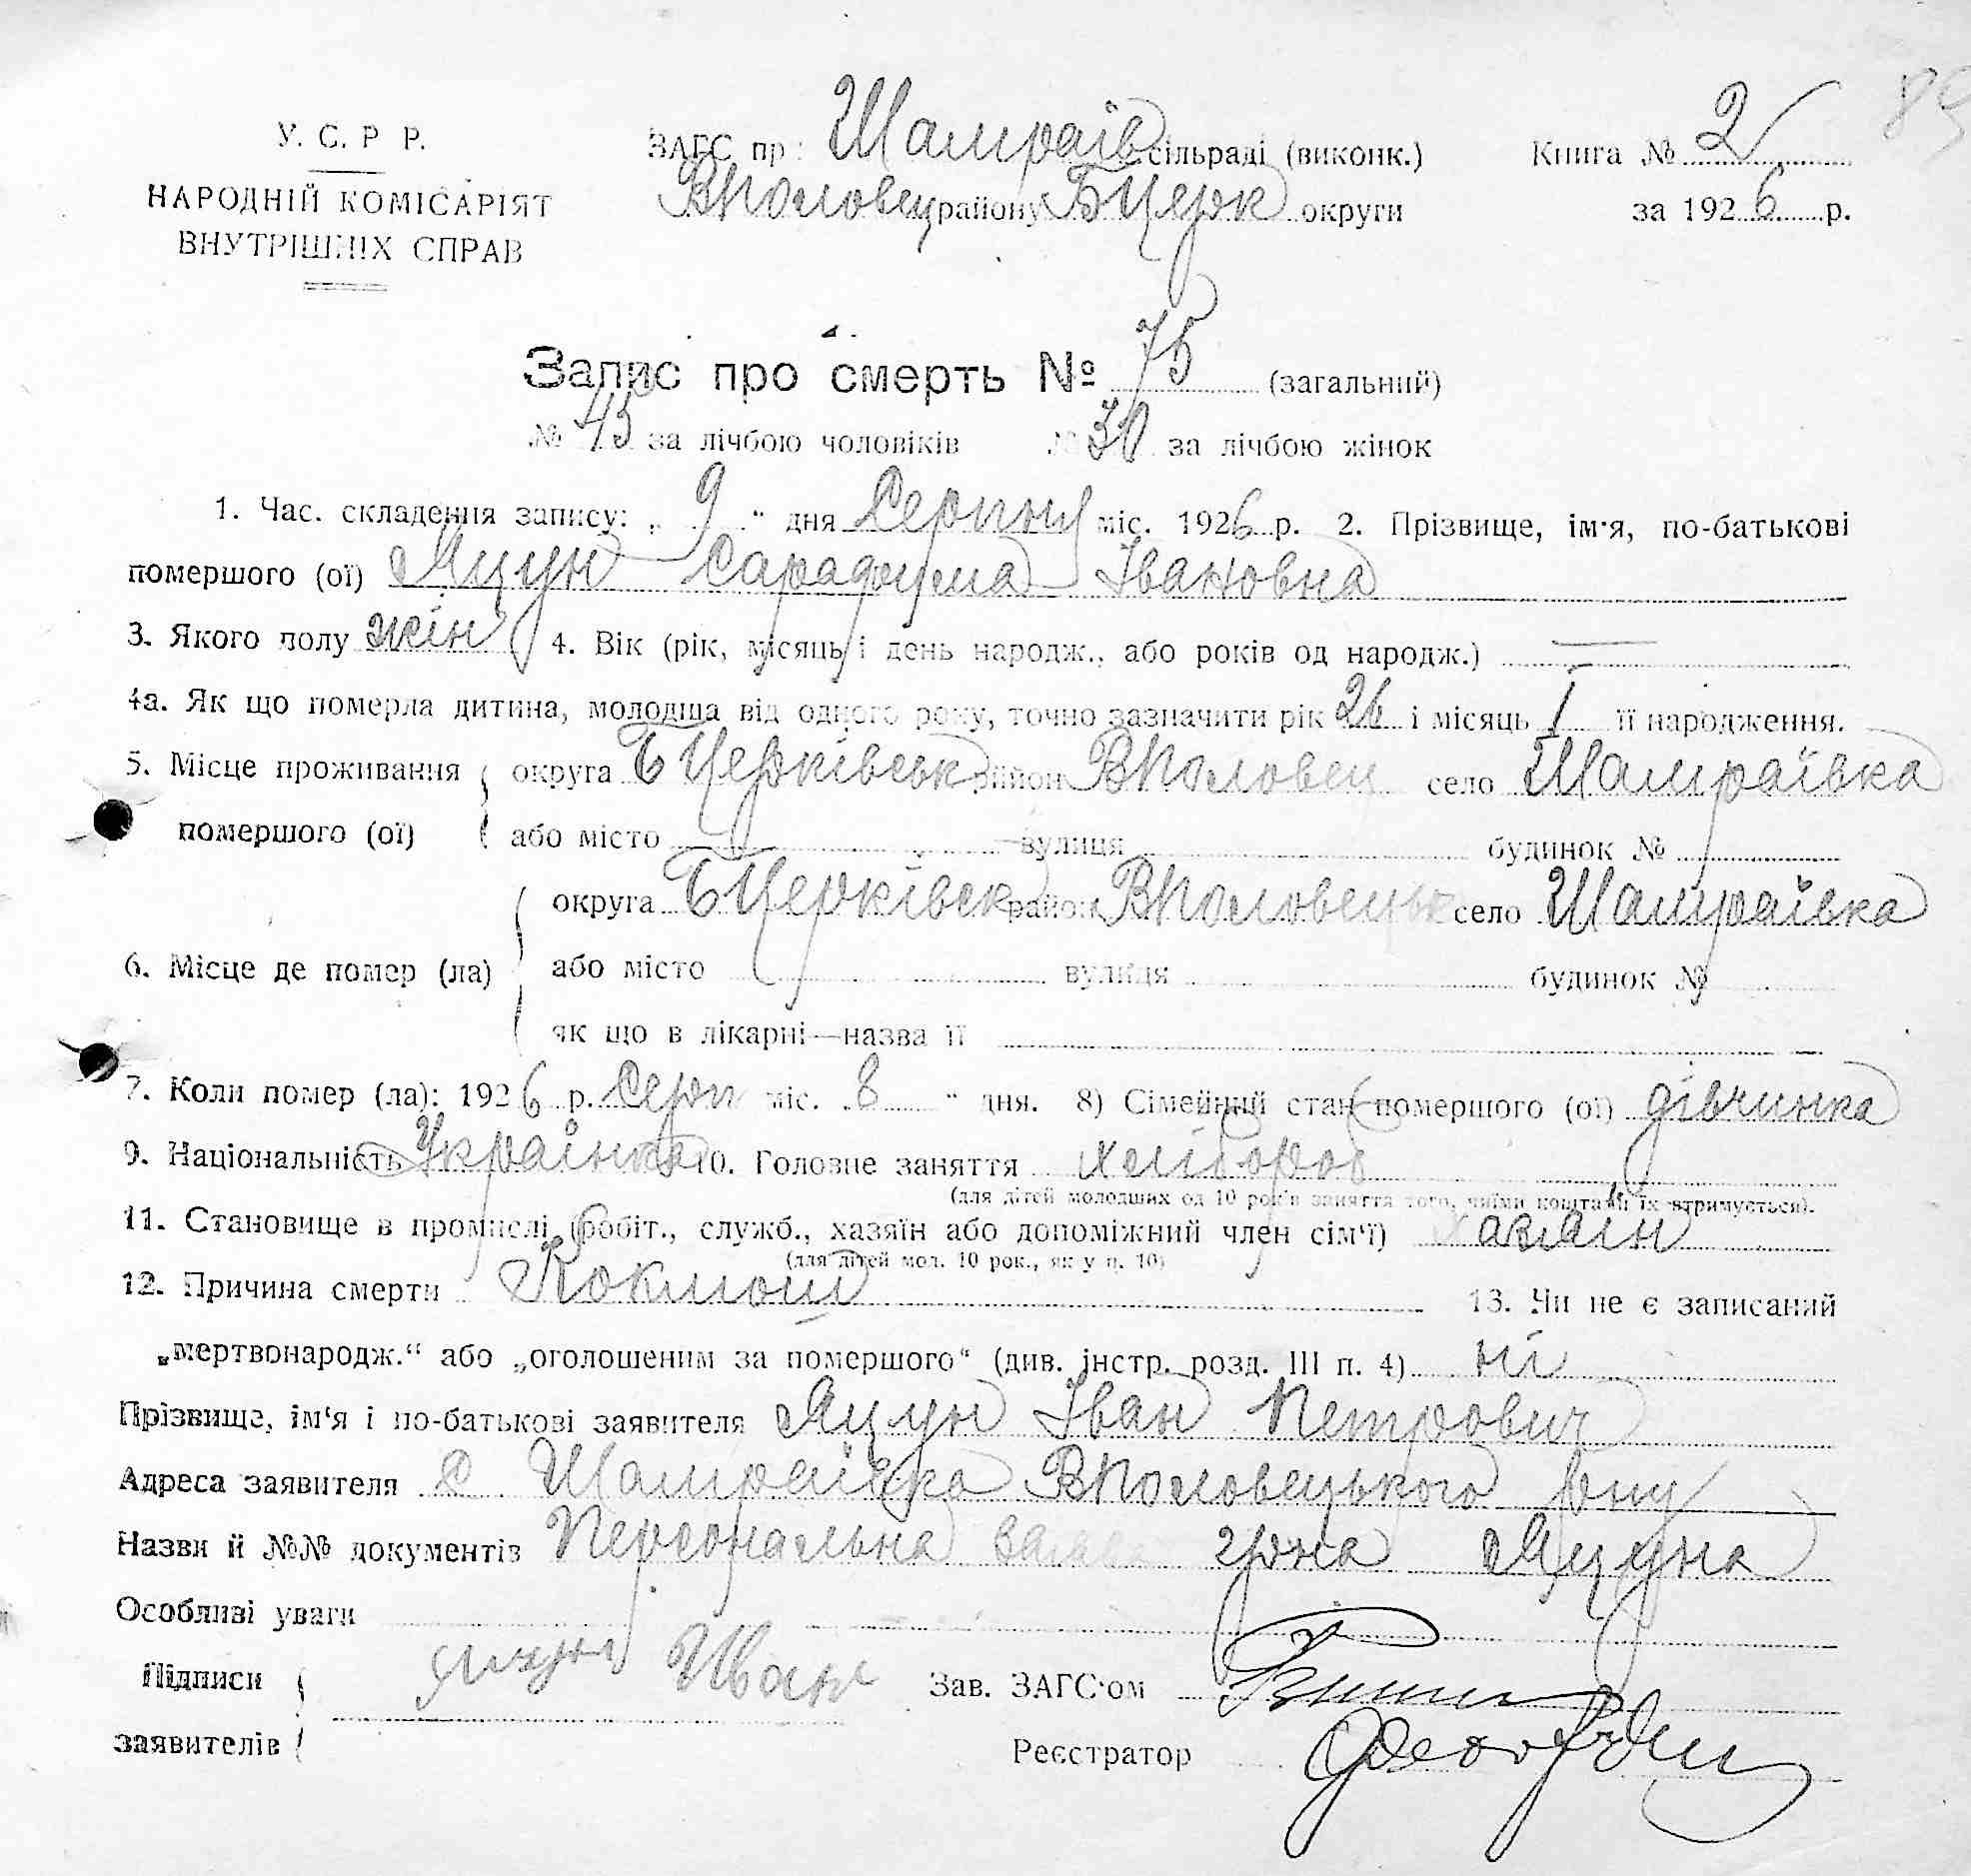 89
У. С. Р Р.
НАРОДНІЙ КОМІСАРІЯТ
ВНУТРІШНІХ СПРАВ
ЗАГС пр: Шамраїв сільраді (виконк.)
ВПоловец району БЦерк округи
Книга № 2
за 1926 р.
Запис про смерть № 75 (загальний)
№ 45 за лічбою чоловіків № 30 за лічбою жінок
1. Час. складення запису: „ 9 " дня Серпня міс. 1926 р. 2. Прізвище, ім'я, по-батькові
помершого (ої) Яцун Ивановна
3. Якого полу жін 4. Вік (рік, місяць і день народж., або років од народж.) —
4а. Як що померла дитина, молодша від одного року, точно зазначити рік 26 і місяць I її народження.
5. Місце проживання округа БЦерківськ район ВПоловец село Шамраївка
помершого (ої) або місто вулиця будинок №
округа БЦерківськ район ВПоловецьк село Шамраївка
6. Місце де помер (ла) або місто вулиця будинок №
як що в лікарні—назва її
7. Коли помер (ла): 1926 р. Серп міс. 8 " дня. 8) Сімейний стан помершого (ої) дівчинка
9. Національність Українка 10. Головне заняття хлібороб
(для дітей молодших од 10 років заняття того, чиїми коштами їх втримується).
11. Становище в промислі (робіт., служб., хазяїн або допоміжний член сім'ї) хазяїн
(для дітей мол. 10 рок., як у п. 10)
12. Причина смерти Коклюш 13. Чи не є записаний
„мертвонародж.“ або „оголошеним за помершого“ (див. інстр. розд. III п. 4) ні
Прізвище, ім'я і по-батькові заявителя Яцун Іван Петрович
Адреса заявителя С Шамраївка ВПоловецького Рну
Назви й №№ документів Персональна заява гр-на Яцуна
Особливі уваги
Підписи Яцун Иван Зав. ЗАГС'ом
заявителів Реєстратор